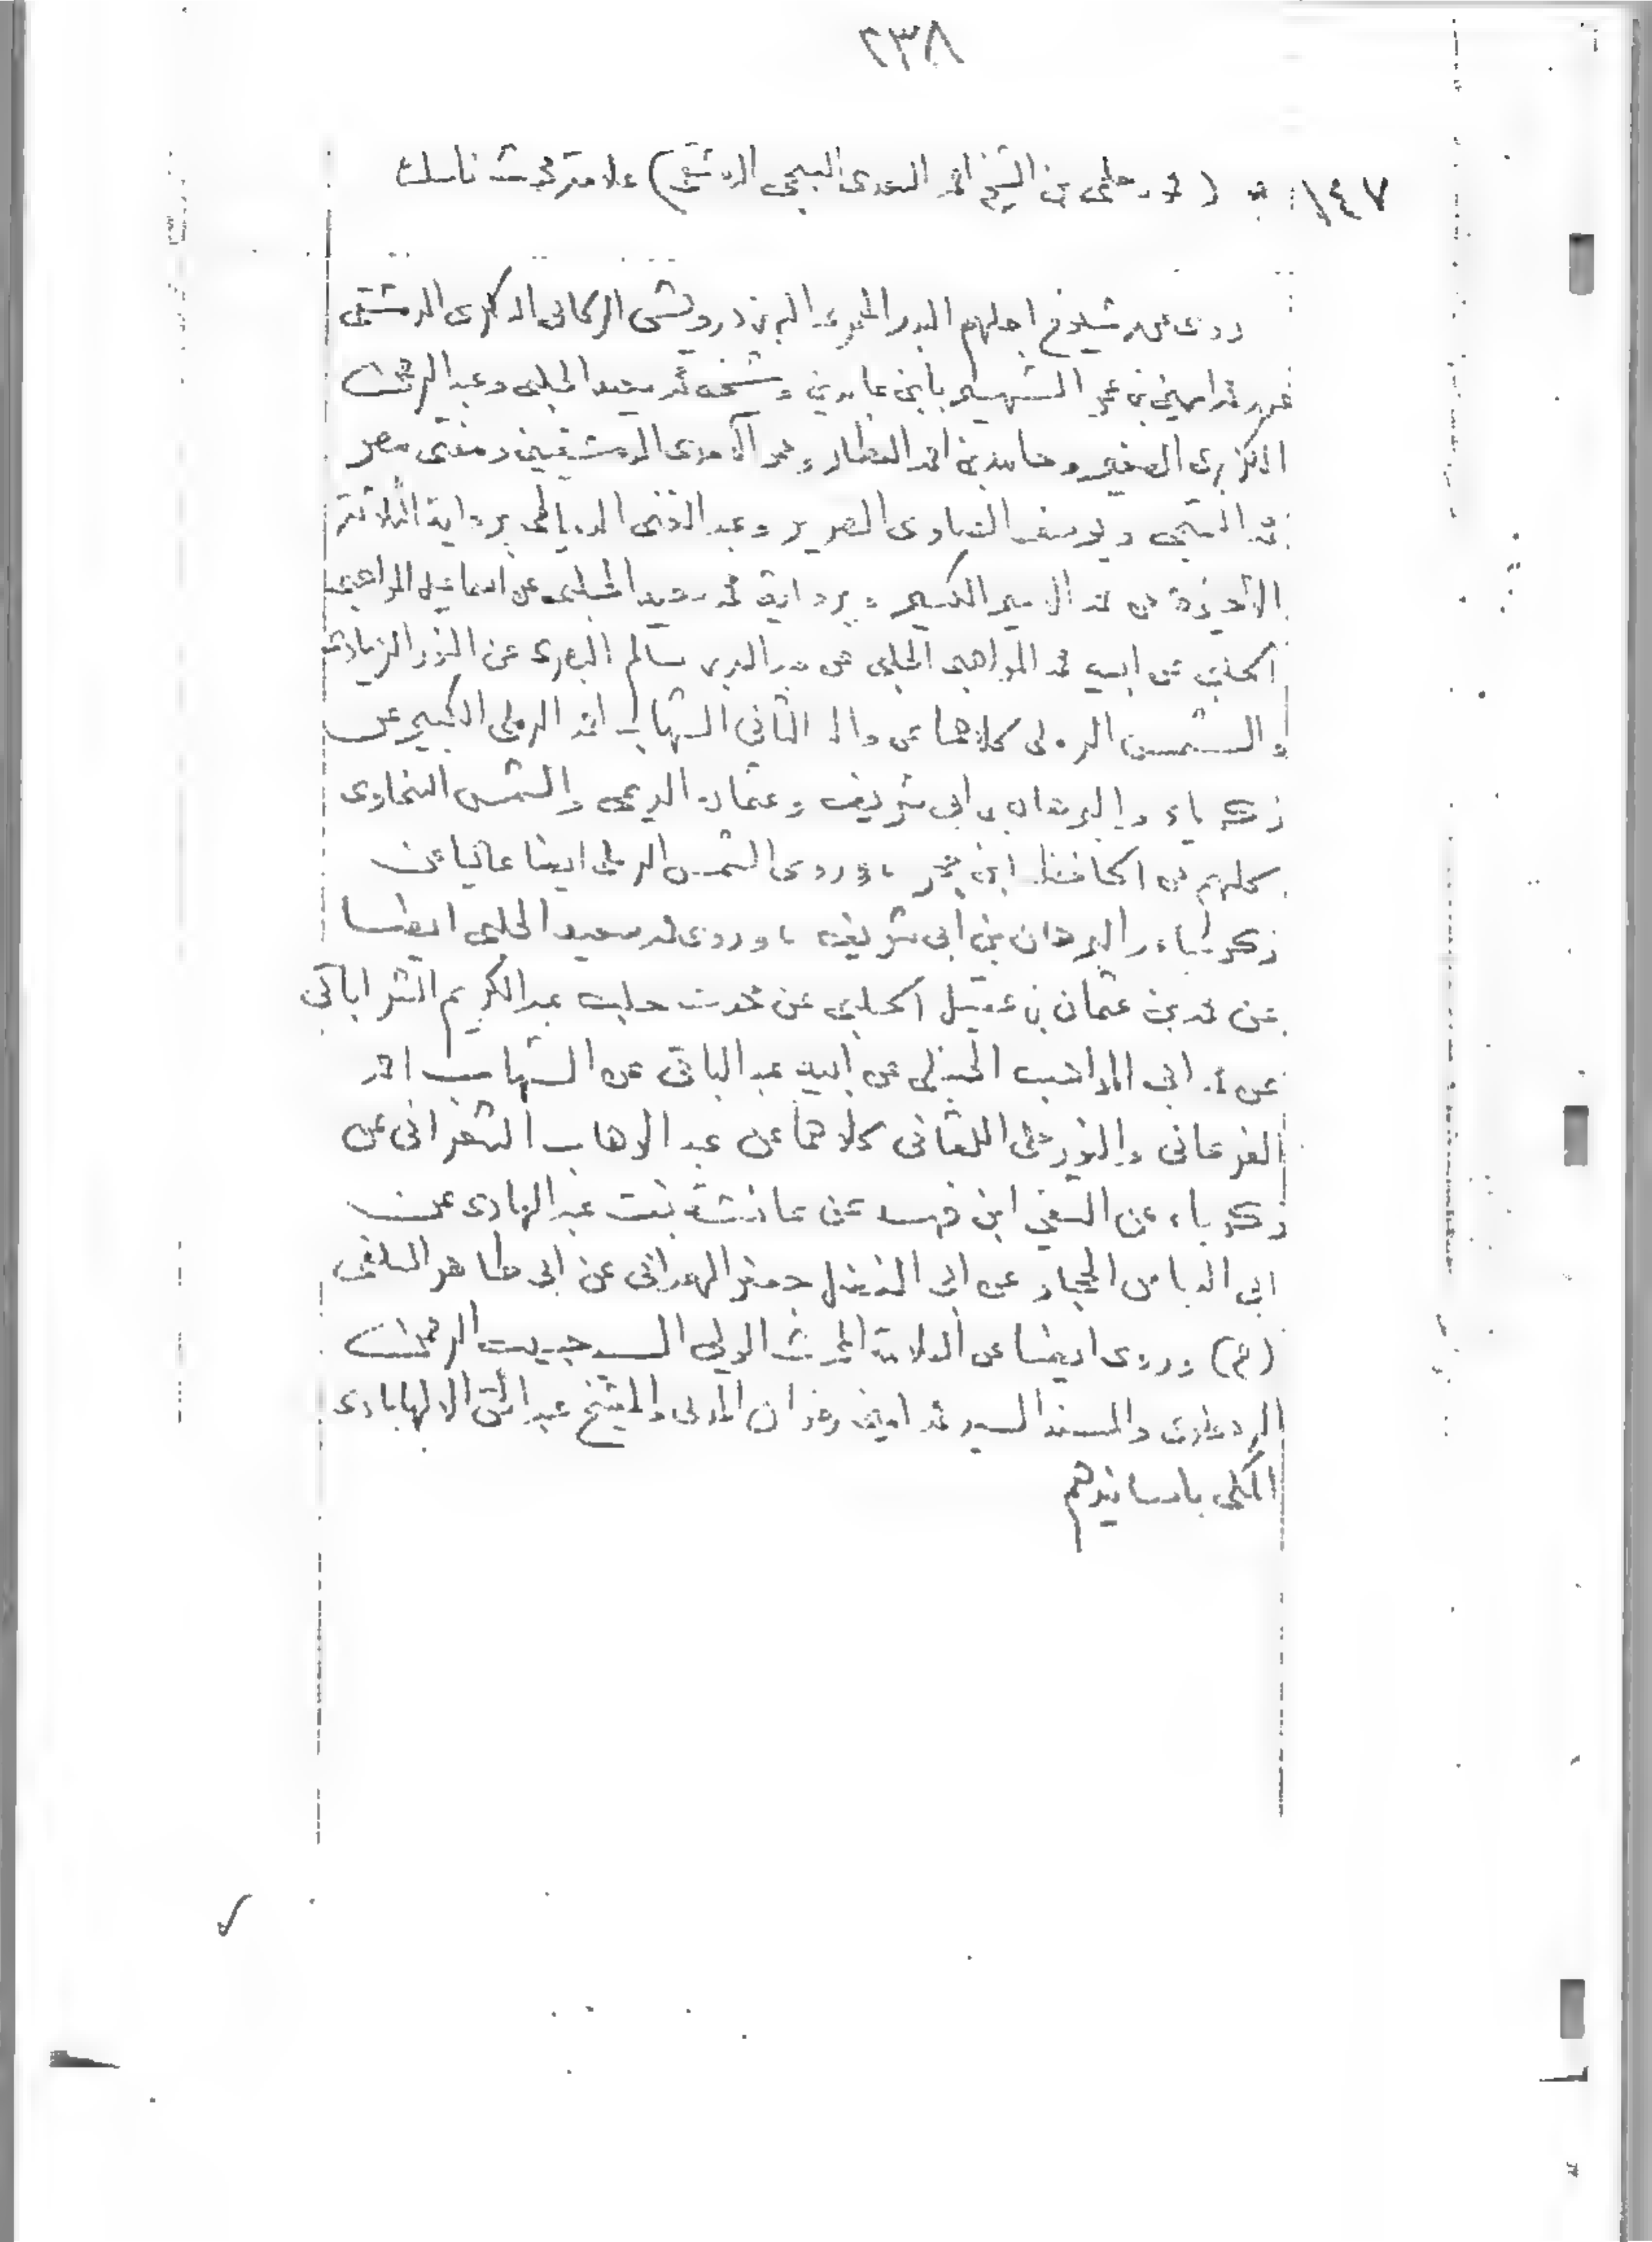 ٢٣٨
١٤٧ * ( محمد حلمي بن الشيخ احمد السعدي الدمشقي ) علامة محدث ناسك
روى عن شيوخ اجلهم البدر عبد الله بن درويش الركابي السكري الدمشقي
محمد امين بن عمر الشهير بابن عابدين وشيخه محمد سعيد الحلبي وعبد الرحمن
الكزبري الصغير وحامد بن احمد العطار وعمر الآمدي الدمشقيين ومفتي مصر
محمد التميمي ويوسف الصاوي الضرير وعبد الغني الدمياطي برواية الثلاثة
الأخيرة عن محمد الامير الكبير وبرواية محمد سعيد الحلبي عن اسماعيل المواهبي
الحلبي عن ابيه محمد المواهبي الحلبي عن عبد الله بن سالم البصري عن النور الزيادي
والشمس الرملي كلاهما عن والد الثاني الشهاب احمد الرملي الكبير عن
زكرياء والبرهان بن ابي شريف وعثمان الديمي والشمس السخاوي
كلهم عن الحافظ ابن حجر ، وروى الشمس الرملي ايضا عاليا عن
زكرياء والبرهان بن أبي شريف ، وروى محمد سعيد الحلبي ايضا
عن محمد بن عثمان بن عقيل الحلبي عن محدث حلب عبد الكريم الشراباتي
عن ابي المواهب الحنبلي عن ابيه عبد الباقي عن الشهاب احمد
العرعاني والنور علي اللقاني كلاهما عن عبد الوهاب الشعراني عن
زكرياء عن التقي ابن فهد عن عائشة بنت عبد الهادي عن
ابي العباس الحجار عن ابي الفضل جعفر الهمداني عن ابي طاهر السلفي
(م) وروى ايضا عن العلامة المحدث الولي السيد حبيب الرحمن
الردولوي والمسند السيد محمد امين رضوان المدني والشيخ عبد الحق الالهابادي
المكي باسانيدهم